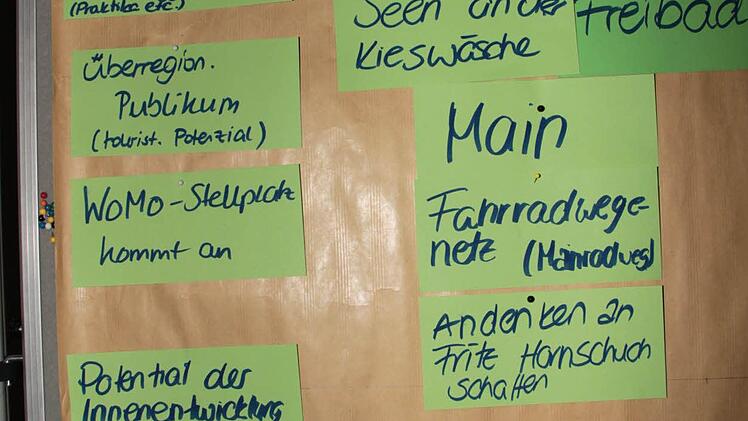 (Praktika etc.)
Überregion.
Publikum
(tourist. Potenzial)
WoMo-Stellplatz
kommt an
Potential der
Innenentwicklung
Seen an der
Kieswäsche
Freibad
Main
Fahrradwege-
netz (Mainradweg)
Andenken an
Fritz Hornschuch
schaffen